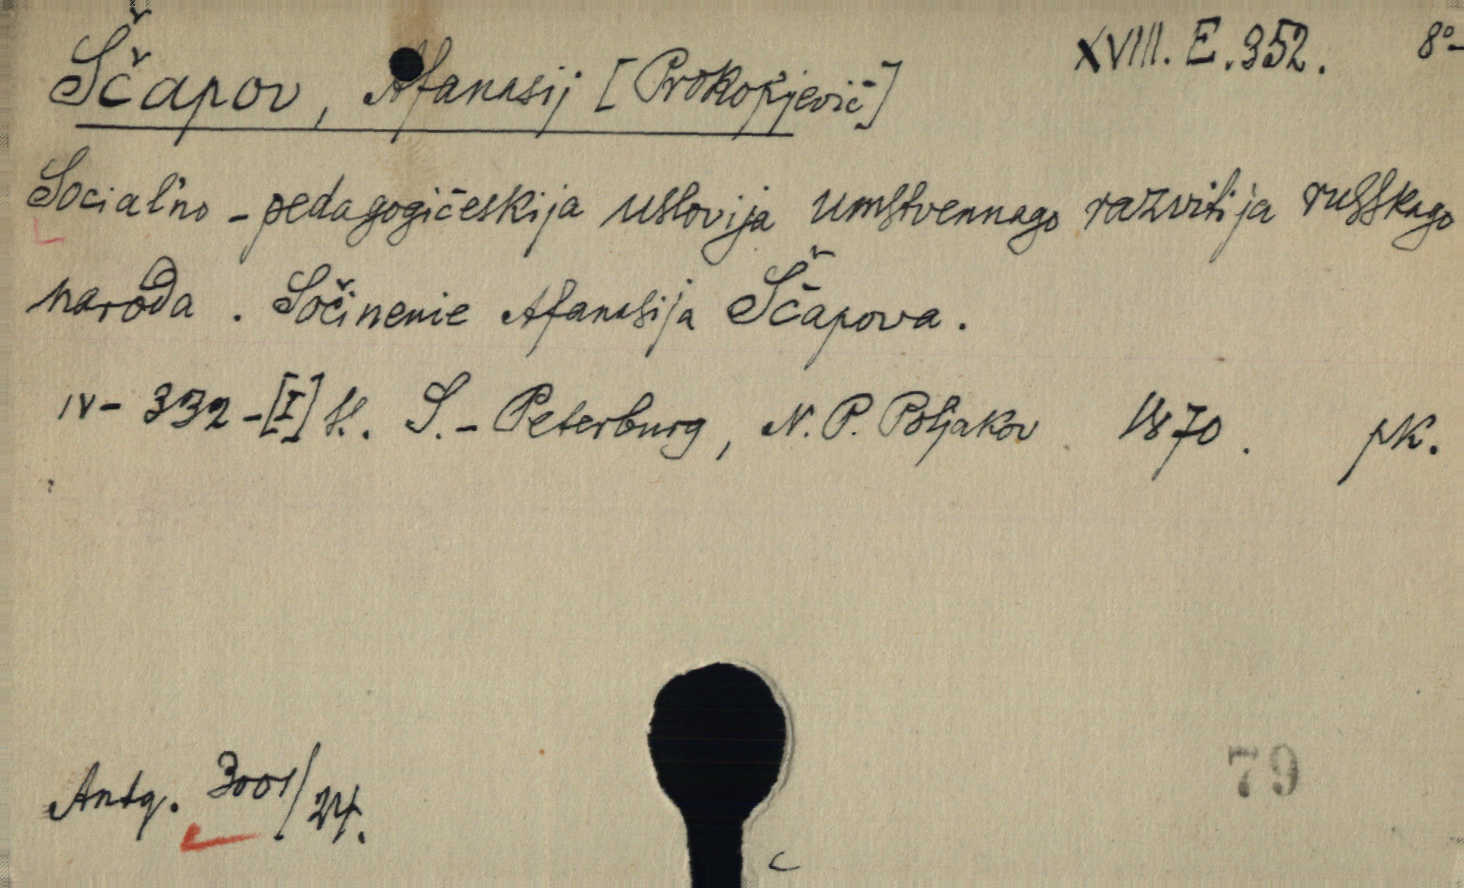 XVIII. E. 352. 8°-
Ščapov, Afanasij [Prokopjevič]
Social'no-pedagogičeskija uslovija umstvennago razvitija russkago
naroda. Sočinenie Afanasija Ščapova.
IV-332-[I] S. S.-Peterburg, N. P. Poljakov 1870. pk.
Antq. 3001/24.
79